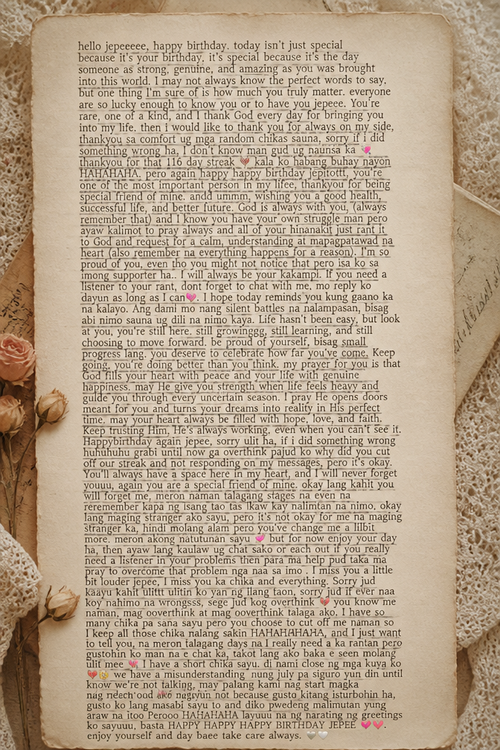 hello jepeeeee, happy birthday. today isn't just special
because it's your birthday, it's special because it's the day
someone as strong, genuine, and amazing as you was brought
into this world. I may not always know the perfect words to say,
but one thing I'm sure of is how much you truly matter. everyone
are so lucky enough to know you or to have you jepeee. You're
rare, one of a kind, and I thank God every day for bringing you
into my life. then I would like to thank you for always on my side,
thankyou sa comfort ug mga random chikas sauna, sorry if I did
something wrong ha, I don't know man gud ug naunsa ka 💘,
thankyou for that 116 day streak 💔 kala ko habang buhay nayon
HAHAHAHA, pero again happy happy birthday jepitottt, you're
one of the most important person in my lifee, thankyou for being
special friend of mine. andd ummm, wishing you a good health,
successful life, and better future. God is always with you, (always
remember that) and I know you have your own struggle man pero
ayaw kalimot to pray always and all of your hinanakit just rant it
to God and request for a calm, understanding at mapagpatawad na
heart (also remember na everything happens for a reason). I'm so
proud of you, even tho you might not notice that pero isa ko sa
imong supporter ha.. I will always be your kakampi. If you need a
listener to your rant, dont forget to chat with me, mo reply ko
dayun as long as I can💘. I hope today reminds you kung gaano ka
na kalayo. Ang dami mo nang silent battles na nalampasan, bisag
abi nimo sauna ug dili na nimo kaya. Life hasn't been easy, but look
at you, you're still here. still growinggg, still learning, and still
choosing to move forward. be proud of yourself, bisag small
progress lang. you deserve to celebrate how far you've come. Keep
going, you're doing better than you think. my prayer for you is that
God fills your heart with peace and your life with genuine
happiness. may He give you strength when life feels heavy and
guide you through every uncertain season. I pray He opens doors
meant for you and turns your dreams into reality in His perfect
time. may your heart always be filled with hope, love, and faith.
Keep trusting Him, He's always working, even when you can't see it.
Happybirthday again jepee, sorry ulit ha, if i did something wrong
huhuhuhu grabi until now ga overthink pajud ko why did you cut
off our streak and not responding on my messages, pero it's okay.
You'll always have a space here in my heart, and I will never forget
youuu, again you are a special friend of mine. okay lang kahit you
will forget me, meron naman talagang stages na even na
reremember kapa ng isang tao tas ikaw kay nalimtan na nimo, okay
lang maging stranger ako sayu, pero it's not okay for me na maging
stranger ka, hindi molang alam pero you've change me a lilbit
more. meron akong natutunan sayu 💘 but for now enjoy your day
ha, then ayaw lang kaulaw ug chat sako or each out if you really
need a listener in your problems then para ma help pud taka ma
pray to overcome that problem nga naa sa imo . I miss you a little
bit louder jepee, I miss you ka chika and everything. Sorry jud
kaayu kahit ulittt ulitin ko yan ng ilang taon, sorry jud if ever naa
koy nahimo na wrongsss, sege jud kog overthink 💔 you know me
naman, mag ooverthink at mag ooverthink talaga ako. I have so
many chika pa sana sayu pero you choose to cut off me naman so
I keep all those chika nalang sakin HAHAHAHAHA, and I just want
to tell you, na meron talagang days na I really need a ka rantan pero
gustohin ko man na e chat ka, takot lang ako baka e seen molang
ulit mee 💘. I have a short chika sayu. di nami close ng mga kuya ko
we have a misunderstanding nung july pa siguro yun din until
know we're not talking, may palang kami nag start magka
not because gusto kitang isturbohin ha,
gusto ko lang masabi sayu and to diko pwedeng malimutan yung
araw na itoo Perooo HAHAHAHA layuuu na ng narating ng greetings
ko sayuuu, basta HAPPY HAPPY HAPPY BIRTHDAY JEPEE 💘💘.
enjoy yourself and day baee take care always. 🤍🤍